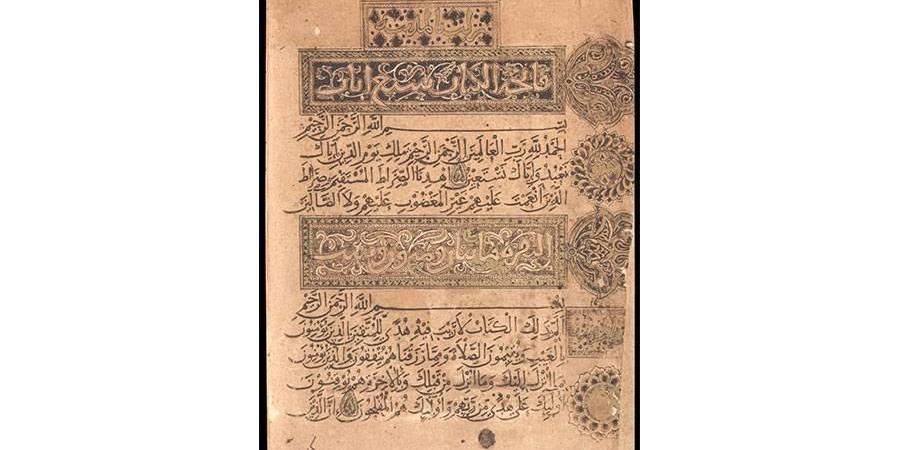 فاتحة الكتاب سبع ايات
بسم الله الرحمن الرحيم
الحمد لله رب العالمين الرحمن الرحيم ملك يوم الدين اياك
نعبد واياك نستعين اهدنا الصراط المستقيم صراط
الذين انعمت عليهم غير المغضوب عليهم ولا الضالين
البقرة مايتان
بسم الله الرحمن الرحيم
الم ذلك الكتاب لا ريب فيه هدى للمتقين الذين يؤمنون
بالغيب ويقيمون الصلاة ومما رزقناهم ينفقون والذين يؤمنون
بما انزل اليك وما انزل من قبلك وبالاخرة هم يوقنون
اوليك على هدى من ربهم واوليك هم المفلحون ان الذين